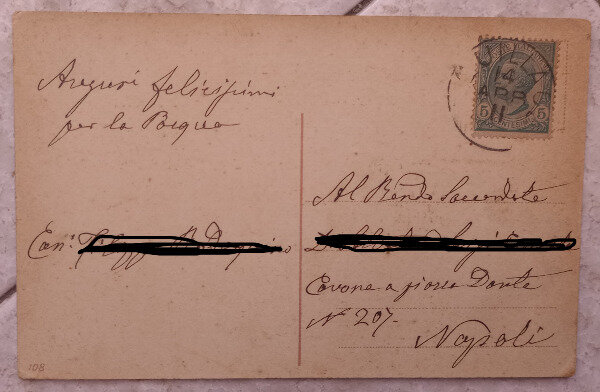 Auguri felicissimi
per la Pasqua
Can.
Al Rendo Sacerdote
Cavone a piazza Dante
N° 207.
Napoli
14
APR
11
5 5
108